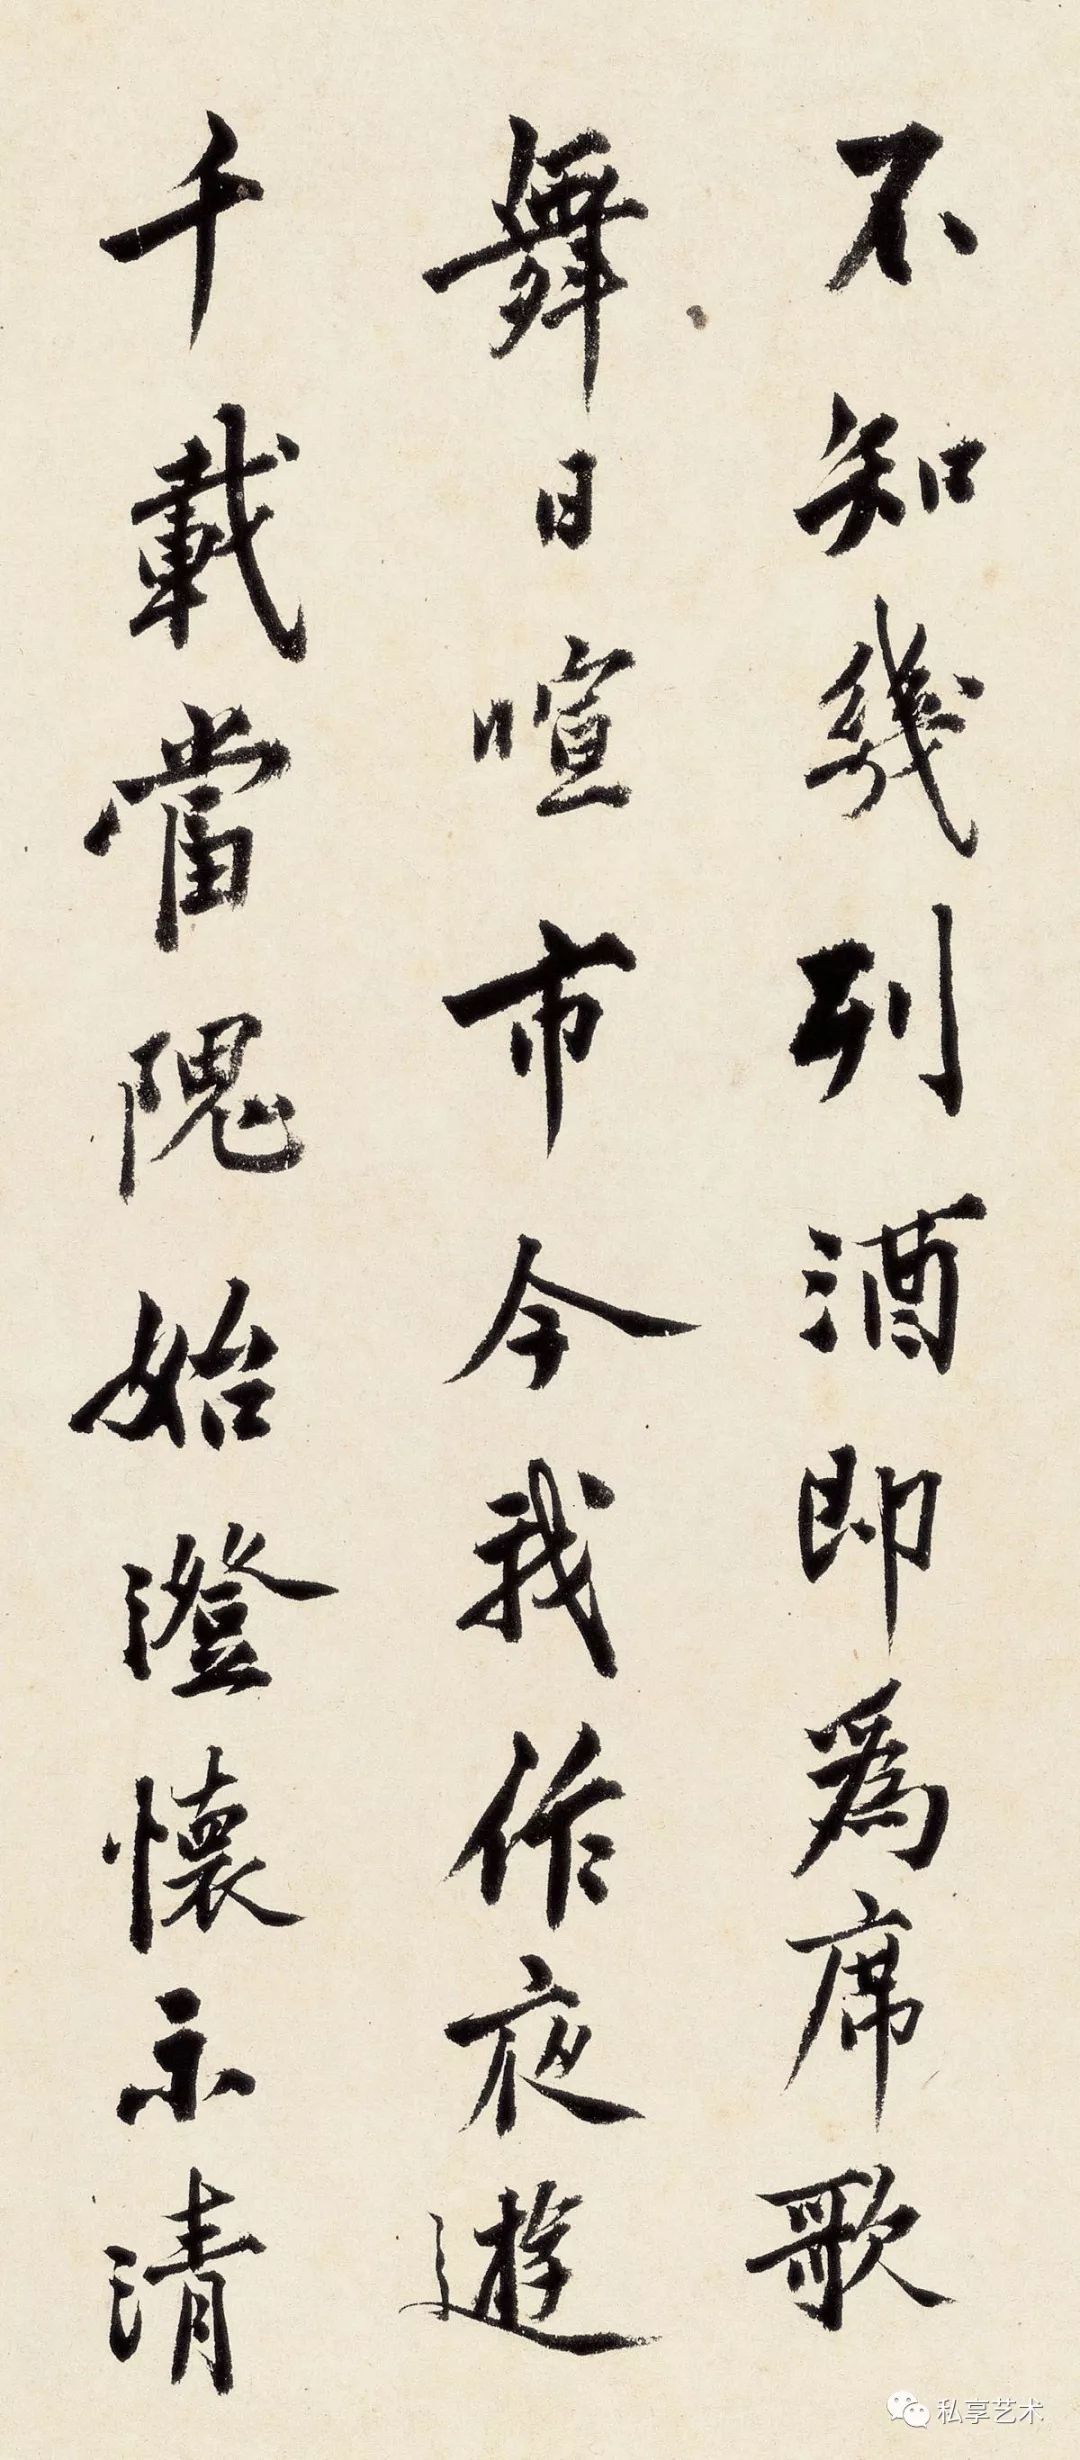 不知幾列酒即為席歌
舞日喧市今我作夜遊
千載當隗始澄懷示清
私享艺术